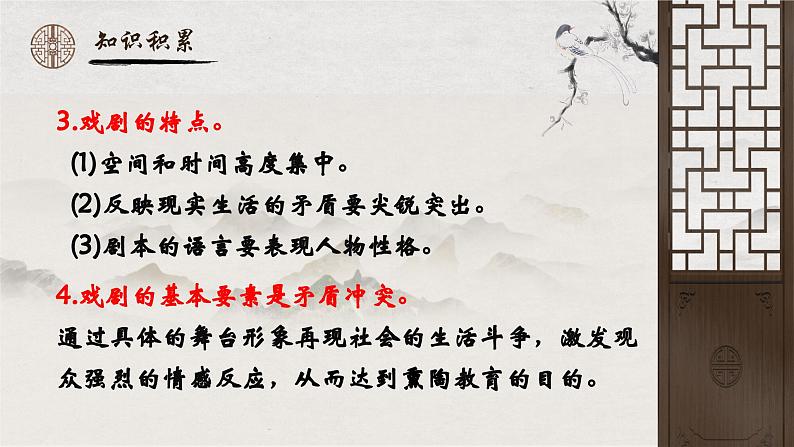 知识积累
3.戏剧的特点。
(1)空间和时间高度集中。
(2)反映现实生活的矛盾要尖锐突出。
(3)剧本的语言要表现人物性格。
4.戏剧的基本要素是矛盾冲突。
通过具体的舞台形象再现社会的生活斗争，激发观
众强烈的情感反应，从而达到熏陶教育的目的。